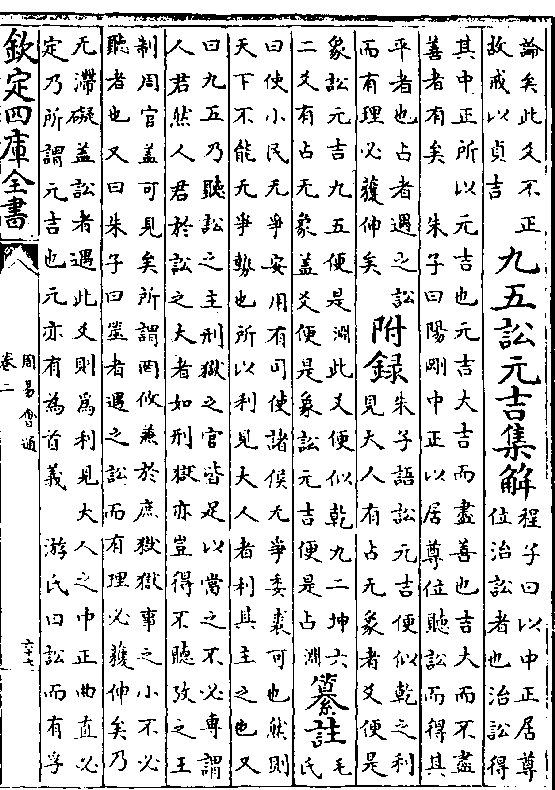 論矣此爻不正
故戒以貞吉
九五訟元吉集解
程子曰以中正居尊
位治訟者也治訟得
其中正所以元吉也元吉大吉而盡善也吉大而不盡
善者有矣　朱子曰陽剛中正以居尊位聽訟而得其
平者也占者遇之訟
而有理必獲伸矣
附録
朱子語訟元吉便似乾之利
見大人有占无象者爻便是
象訟元吉九五便是淵此又便似乾九二坤六
二爻有占无象葢爻便是象訟元吉便是占淵
纂註
毛
氏
曰使小民无爭安用有司使諸侯无爭委裘可也然則
天下不能无爭勢也所以利見大人者利其主之也又
曰九五乃聽訟之主刑獄之官皆足以當之不必專謂
人君然人君於訟之大者如刑獄亦豈得不聽攷之王
制周官葢可見矣所謂罔攸兼於庶獄獄事之小不必
聽者也又曰朱子曰筮者遇之訟而有理必獲伸矣乃
无滯礙葢訟者遇此爻則爲利見大人之中正曲直必
定乃所謂元吉也元亦有為首義　游氏曰訟而有孚
欽定四庫全書
周易㑹通
卷二